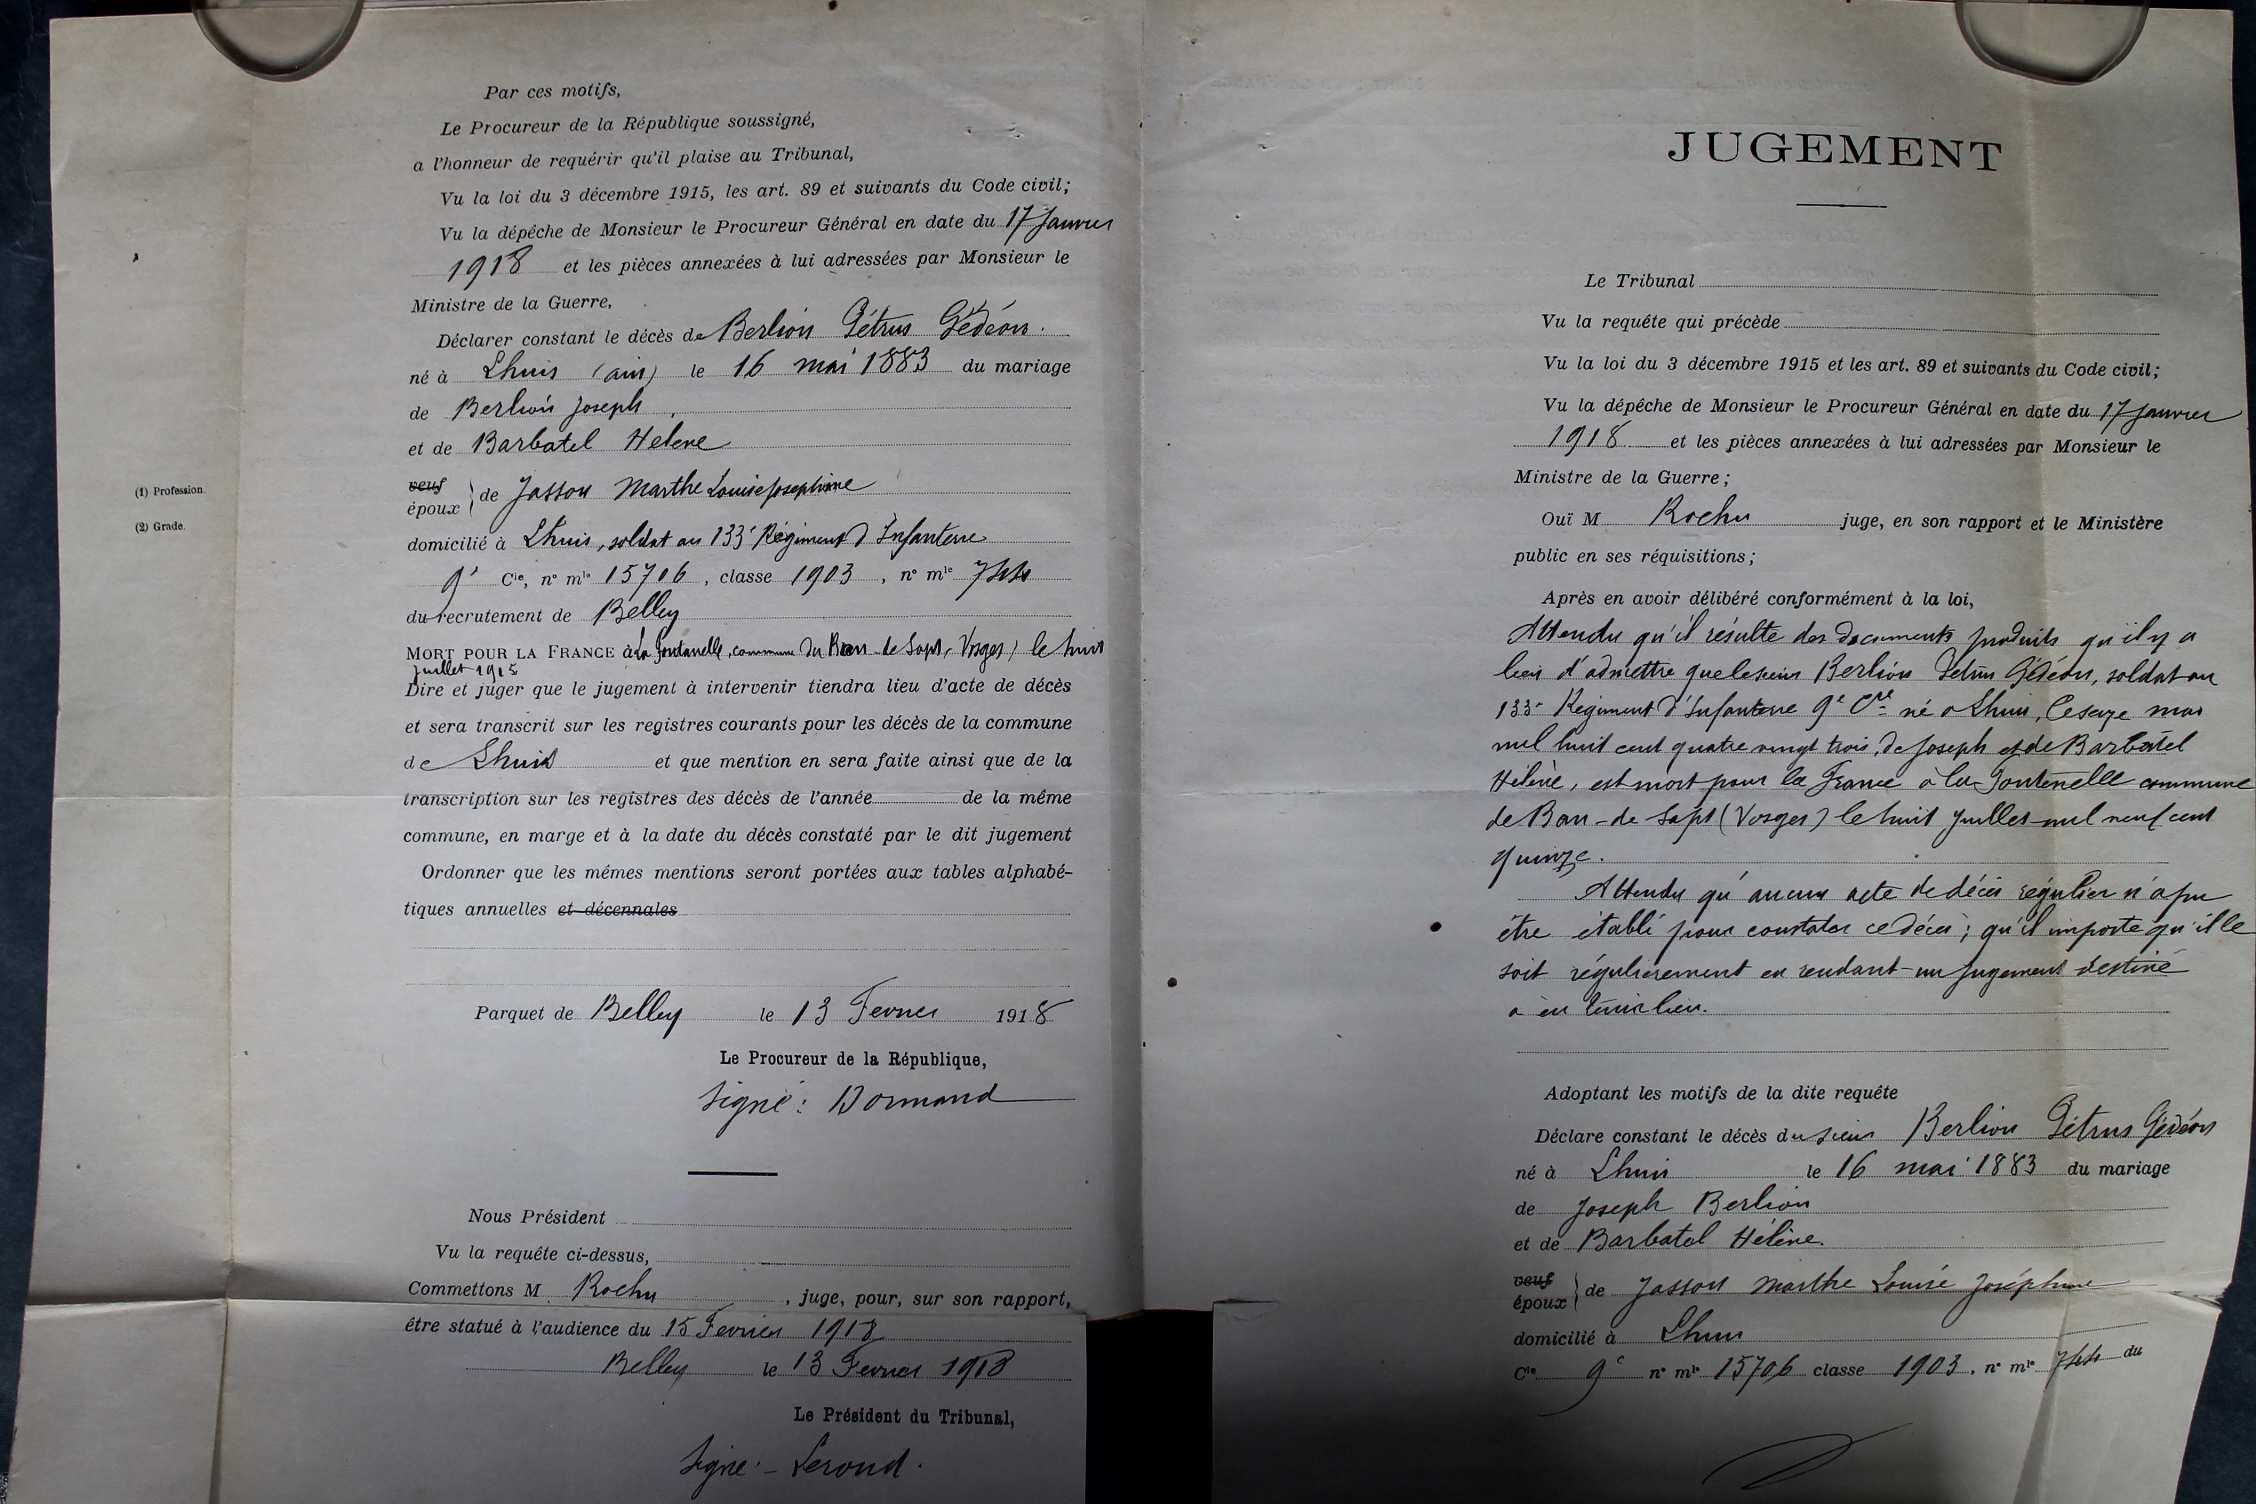 Par ces motifs,
Le Procureur de la République soussigné,
a l'honneur de requérir qu'il plaise au Tribunal,
Vu la loi du 3 décembre 1915, les art. 89 et suivants du Code civil;
Vu la dépêche de Monsieur le Procureur Général en date du 17 Janvier
1918 et les pièces annexées à lui adressées par Monsieur le
Ministre de la Guerre,
Déclarer constant le décès de Berlion Pétrus Gédéon.
né à Lhuis (ain) le 16 mai 1883 du mariage
de Berlion Joseph,
et de Barbatel Helene
(1) Profession.
veuf
époux } de Jasson Marthe Louise Josephine
(2) Grade.
domicilié à Lhuis, soldat au 133e Régiment d'Infanterie
9e Cie, n° mle 15706, classe 1903, n° mle
du recrutement de Belley
MORT POUR LA FRANCE à La Fontenelle, commune du Ban-de-Sapt, Vosges) le huit
juillet 1915
Dire et juger que le jugement à intervenir tiendra lieu d'acte de décès
et sera transcrit sur les registres courants pour les décès de la commune
de Lhuis et que mention en sera faite ainsi que de la
transcription sur les registres des décès de l'année de la même
commune, en marge et à la date du décès constaté par le dit jugement
Ordonner que les mêmes mentions seront portées aux tables alphabé-
tiques annuelles et décennales
Parquet de Belley le 13 Fevrier 1918
Le Procureur de la République,
Signé: Dormand
Nous Président
Vu la requête ci-dessus,
Commettons M. Rochu, juge, pour, sur son rapport,
être statué à l'audience du 15 Fevrier 1918
Belley le 13 Fevrier 1918
Le Président du Tribunal,
Signé:- Leroud.
JUGEMENT
Le Tribunal
Vu la requête qui précède
Vu la loi du 3 décembre 1915 et les art. 89 et suivants du Code civil;
Vu la dépêche de Monsieur le Procureur Général en date du 17 Janvier
1918 et les pièces annexées à lui adressées par Monsieur le
Ministre de la Guerre;
Ouï M Rochu juge, en son rapport et le Ministère
public en ses réquisitions;
Après en avoir délibéré conformément à la loi,
Attendu qu'il résulte des documents produits qu'il y a
lieu d'admettre que le sieur Berlion Pétrus Gédéon, soldat au
133e Régiment d'Infanterie 9e Cie né à Lhuis, le seize mai
mil huit cent quatre vingt trois, de Joseph et de Barbatel
Hélène, est mort pour la France à la Fontenelle commune
de Ban-de Sapt (Vosges) le huit juillet mil neuf cent
quinze.
Attendu qu'aucun acte de décès régulier n'a pu
être établi pour constater ce décès; qu'il importe qu'il le
soit régulièrement en rendant un jugement destiné
à en tenir lieu.
Adoptant les motifs de la dite requête
Déclare constant le décès du sieur Berlion Pétrus Gédéon
né à Lhuis le 16 mai 1883 du mariage
de Joseph Berlion
et de Barbatel Hélène.
veuf
époux } de Jasson Marthe Louise Joséphine
domicilié à Lhuis
Cie 9e n° mle 15706 classe 1903, n° mle du